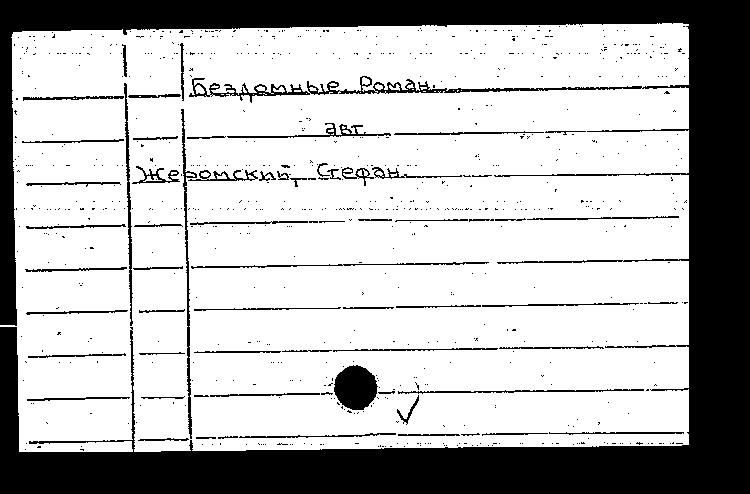 Бездомные. Роман.
авт.
Жеромский, Стефан.